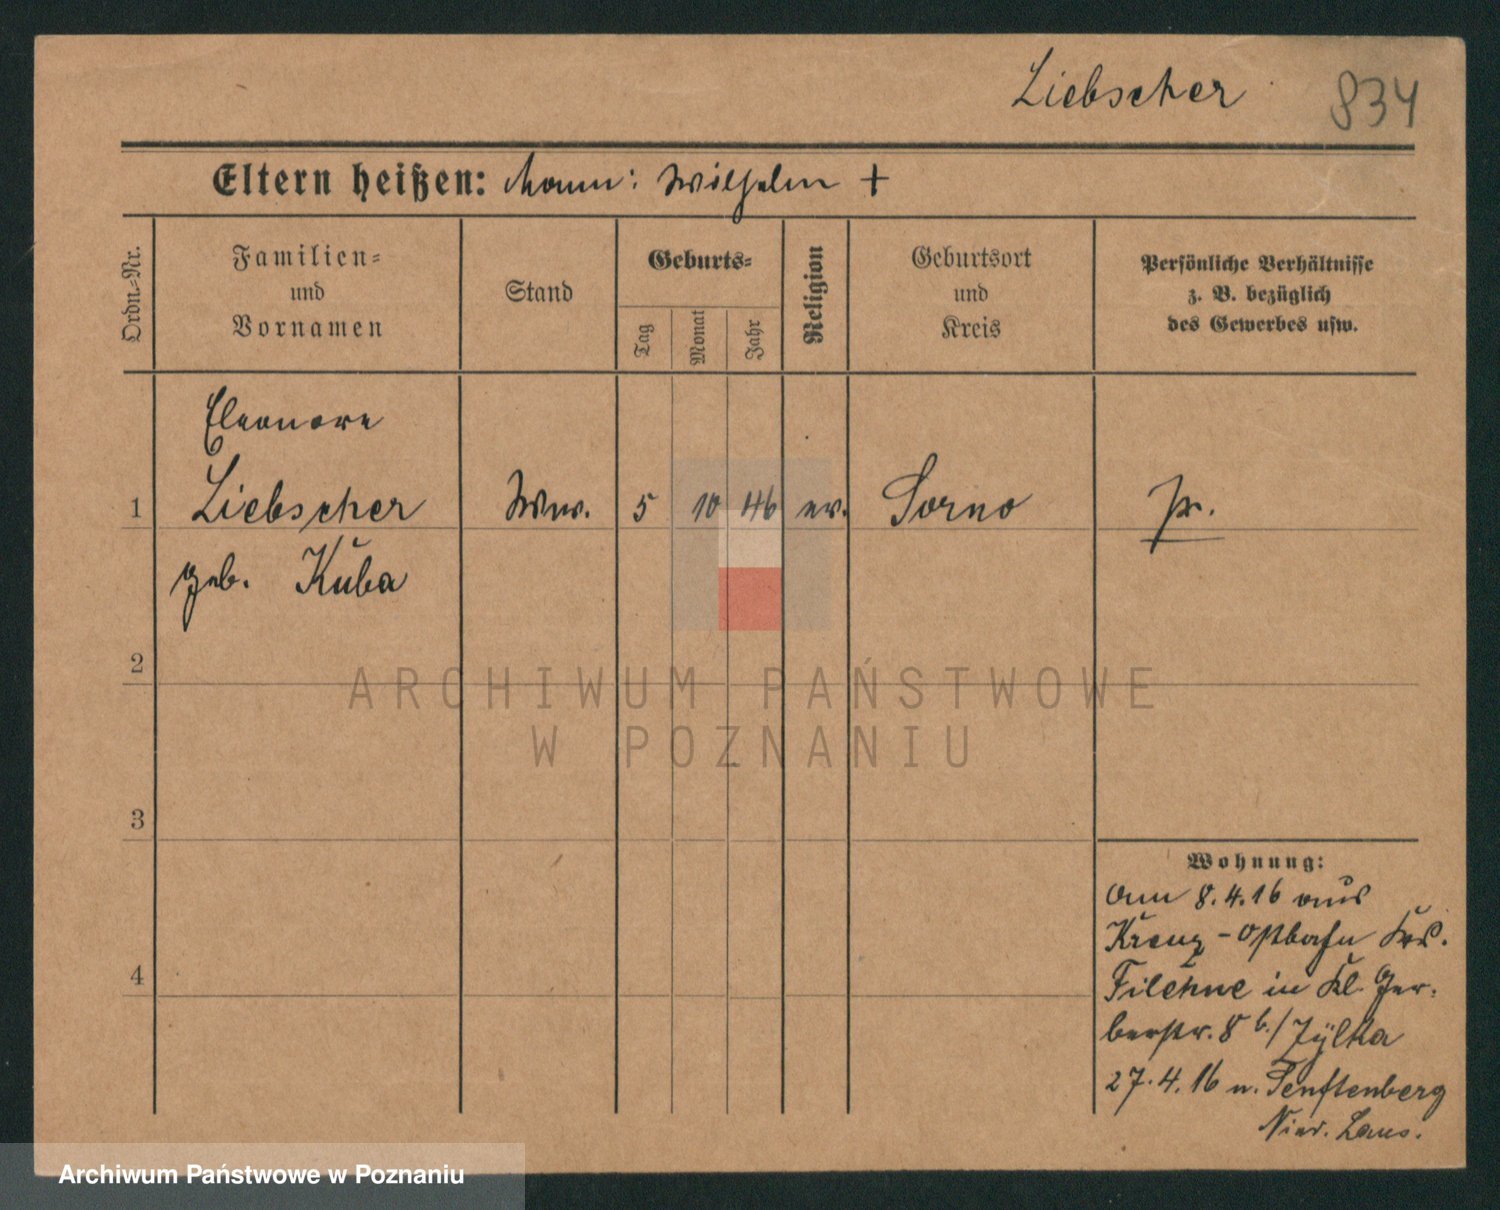 Liebscher 834
Eltern heißen: Mann: Wilhelm +
Ordn.-Nr.
Familien-
und
Vornamen
Stand
Geburts-
Tag
Monat
Jahr
Religion
Geburtsort
und
Kreis
Persönliche Verhältnisse
z. B. bezüglich
des Gewerbes usw.
Eleonore
1 Liebscher Ww. 5 10 46 ev. Sorno Pr.
geb. Kuba
2
3
4
Wohnung:
am 8.4.16 aus
Kreuz - Ostbahn Krs.
Filehne in Kl. Ger-
berstr. 8 b./Zylka
27.4.16 n. Senftenberg
Nied. Laus.
ARCHIWUM PAŃSTWOWE
W POZNANIU
Archiwum Państwowe w Poznaniu